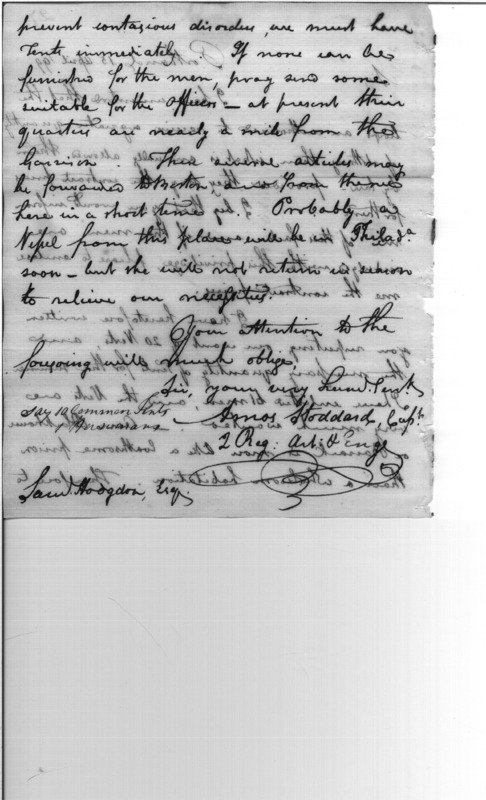 prevent contagious disorders, we must have
Tents, immediately. If none can be
furnished for the men, pray send some
suitable for the Officers — at present their
quarters are nearly a mile from the
Garrison. These several articles may
be forwarded to Boston and from thence
here in a short time. Probably a
Vessel from this place will be in Philad.a
soon — but she will not return in season
to relieve our necessities.
Your attention to the
foregoing will much oblige,
Sir, your very Hume. Servt.
Say 10 Common Tents
Amos Stoddard, Capt.
2 Reg: Art: & Engs
Saml. Hodgdon, Esq.